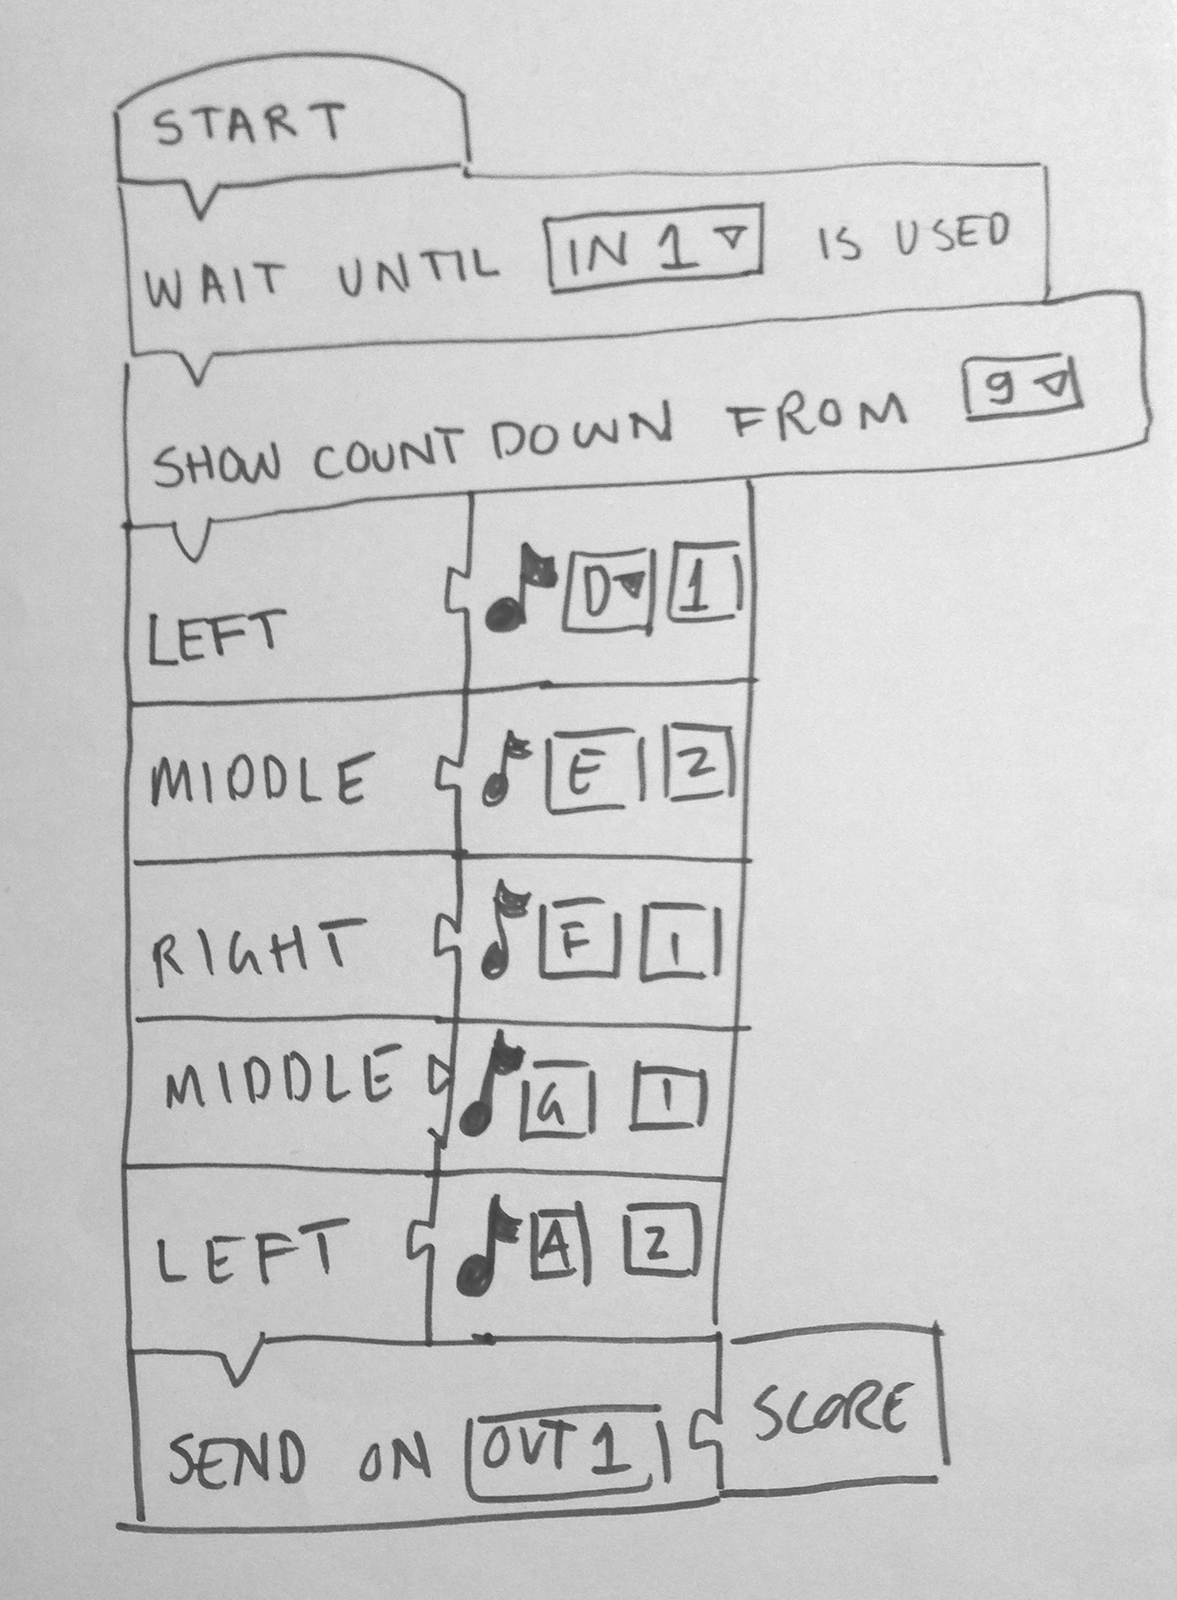 START
WAIT UNTIL IN 1 IS USED
SHOW COUNT DOWN FROM 9
LEFT D 1
MIDDLE E 2
RIGHT F 1
MIDDLE G 1
LEFT A 2
SEND ON OUT 1 SCORE